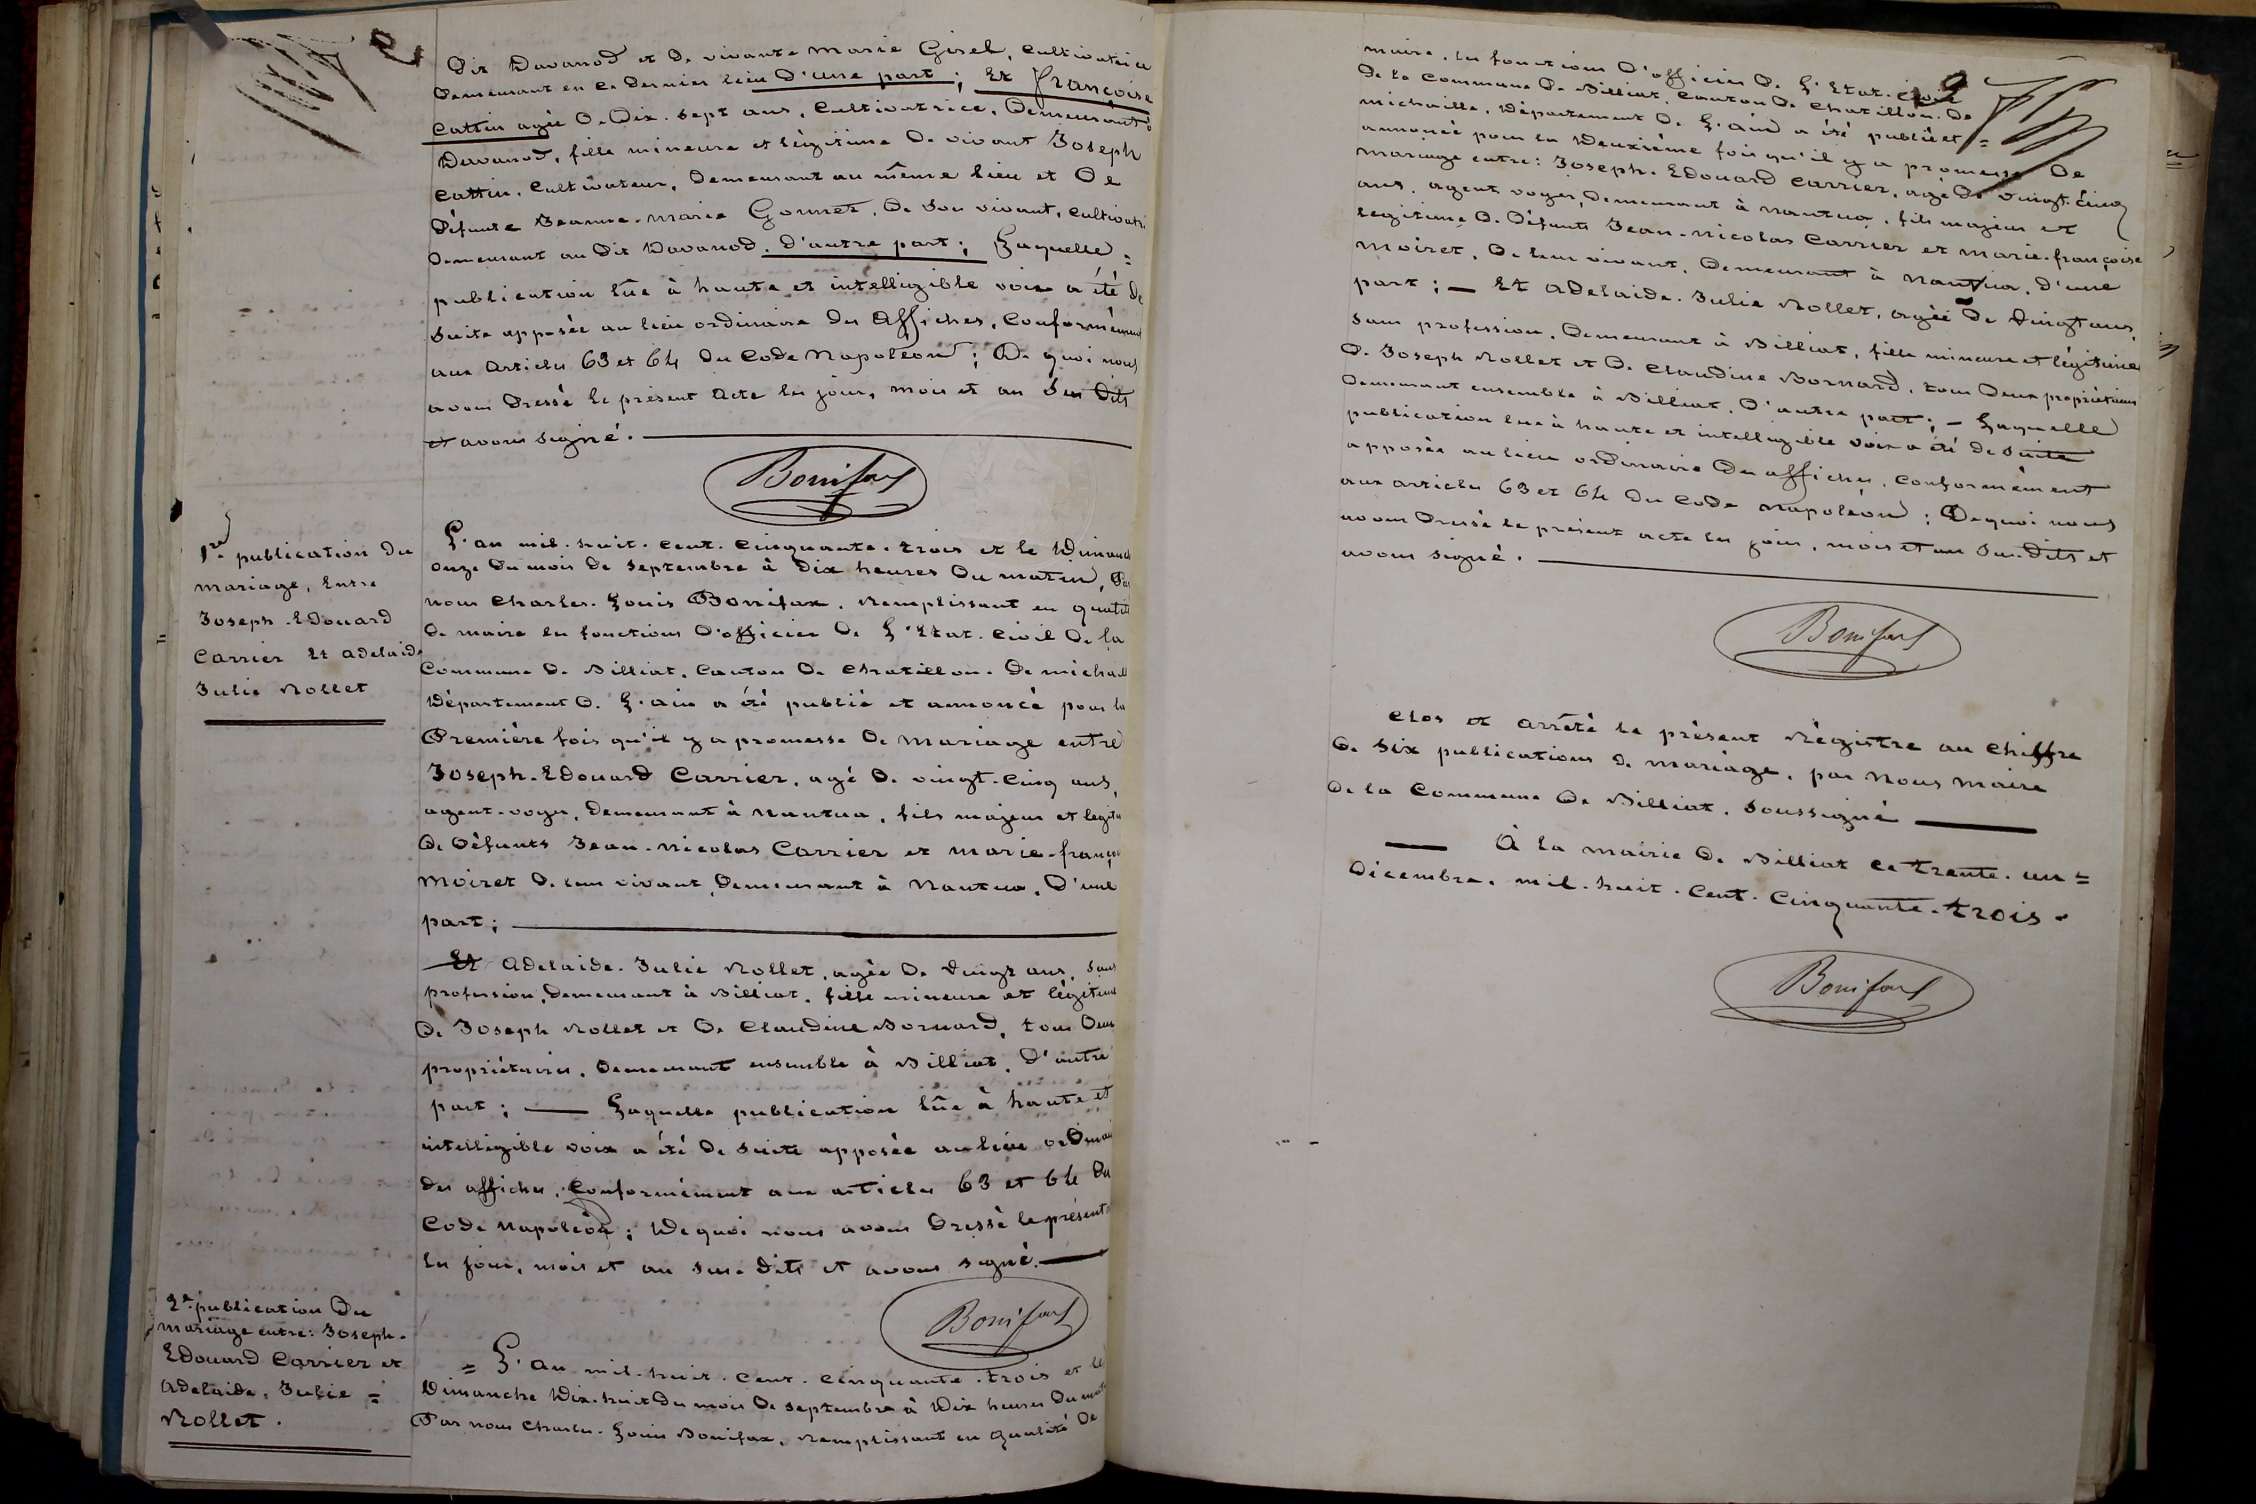 Dit Davanod et de vivante Marie Girel, cultivatrice
demeurant en ce dernier lieu d'une part; Et Françoise
Cattin agée de dix-sept ans, cultivatrice, demeurant à
Davanod, fille mineure et légitime de vivant Joseph
Cattin, cultivateur, demeurant au même lieu et de
défunte Jeanne-Marie Gonnet, de son vivant, cultivatri
demeurant au dit Davanod, d'autre part; Laquelle =
publication lûe à haute et intelligible voix a été de
suite apposée au lieu ordinaire des affiches, conformément
aux articles 63 et 64 du Code Napoléon; De quoi nous
avons dressé le présent acte les jour, mois et an sus dits
et avons signé.
Bonifax
1re publication du
mariage, Entre
Joseph-Edouard
Carrier Et Adelaide
Julie Rollet
L'an mil-huit-cent-cinquante-trois et le Dimanche
onze du mois de septembre à dix heures du matin, Par
nous Charles-Louis Bonifax, remplissant en qualité
de maire les fonctions d'officier de l'Etat-civil de la
commune de Billiat, canton de Chatillon-de-Michaill
Département de l'ain a été publié et annoncé pour la
Première fois qu'il y a promesse de mariage entre
Joseph-Edouard Carrier, agé de vingt-cinq ans,
agent-voyer, demeurant à Nantua, fils majeur et legiti
de défunts Jean-Nicolas Carrier et Marie-franço
Moiret de leur vivant, demeurant à Nantua, d'une
part;
Et Adelaide-Julie Rollet, agée de vingt ans, sans
profession, demeurant à Billiat, fille mineure et légitime
de Joseph Rollet et de Claudine Bornard, tous deux
propriétaires, demeurant ensemble à Billiat, d'autre
part; Laquelle publication lûe à haute et
intelligible voix a été de suite apposée au lieu ordinai
des affiches, conformément aux articles 63 et 64 du
Code Napoléon; De quoi nous avons dressé le présent
les jour, mois et an sus-dits et avons signé.
Bonifax
2e publication du
mariage entre: Joseph-
Edouard Carrier et
Adelaide, Julie =
Rollet.
= L'an mil-huit-cent-cinquante-trois et le
Dimanche dix-huit du mois de septembre à dix heures du mati
Par nous Charles-Louis Bonifax, remplissant en qualité de
9
maire, les fonctions d'officier de l'Etat-civil
de la commune de Billiat, canton de Chatillon-de
michaille, Département de l'ain a été publié et =
annoncé pour la Deuxième fois qu'il y a promesse de
mariage entre: Joseph-Edouard Carrier, agé de vingt-cinq
ans, agent voyer, demeurant à Nantua, fils majeur et
légitime de défunts Jean-Nicolas Carrier et Marie-françoise
Moiret, de leur vivant, demeurant à Nantua, d'une
part; — Et Adelaide-Julie Rollet, agée de vingt ans,
sans profession, demeurant à Billiat, fille mineure et légitime
de Joseph Rollet et de Claudine Bornard, tous deux propriétaires
demeurant ensemble à Billiat, d'autre part; — Laquelle
publication lue à haute et intelligible voix a été de suite
apposée au lieu ordinaire des affiches, conformément
aux articles 63 et 64 du Code Napoléon; De quoi nous
avons dressé le présent acte les jour, mois et an sus-dits et
avons signé.
Bonifax
Clos et arrêté le présent Régistre au chiffre
de six publications de mariage, par Nous Maire
de la Commune de Billiat, soussigné
À la mairie de Billiat ce trente-un =
Décembre, mil-huit-cent-cinquante-trois.
Bonifax